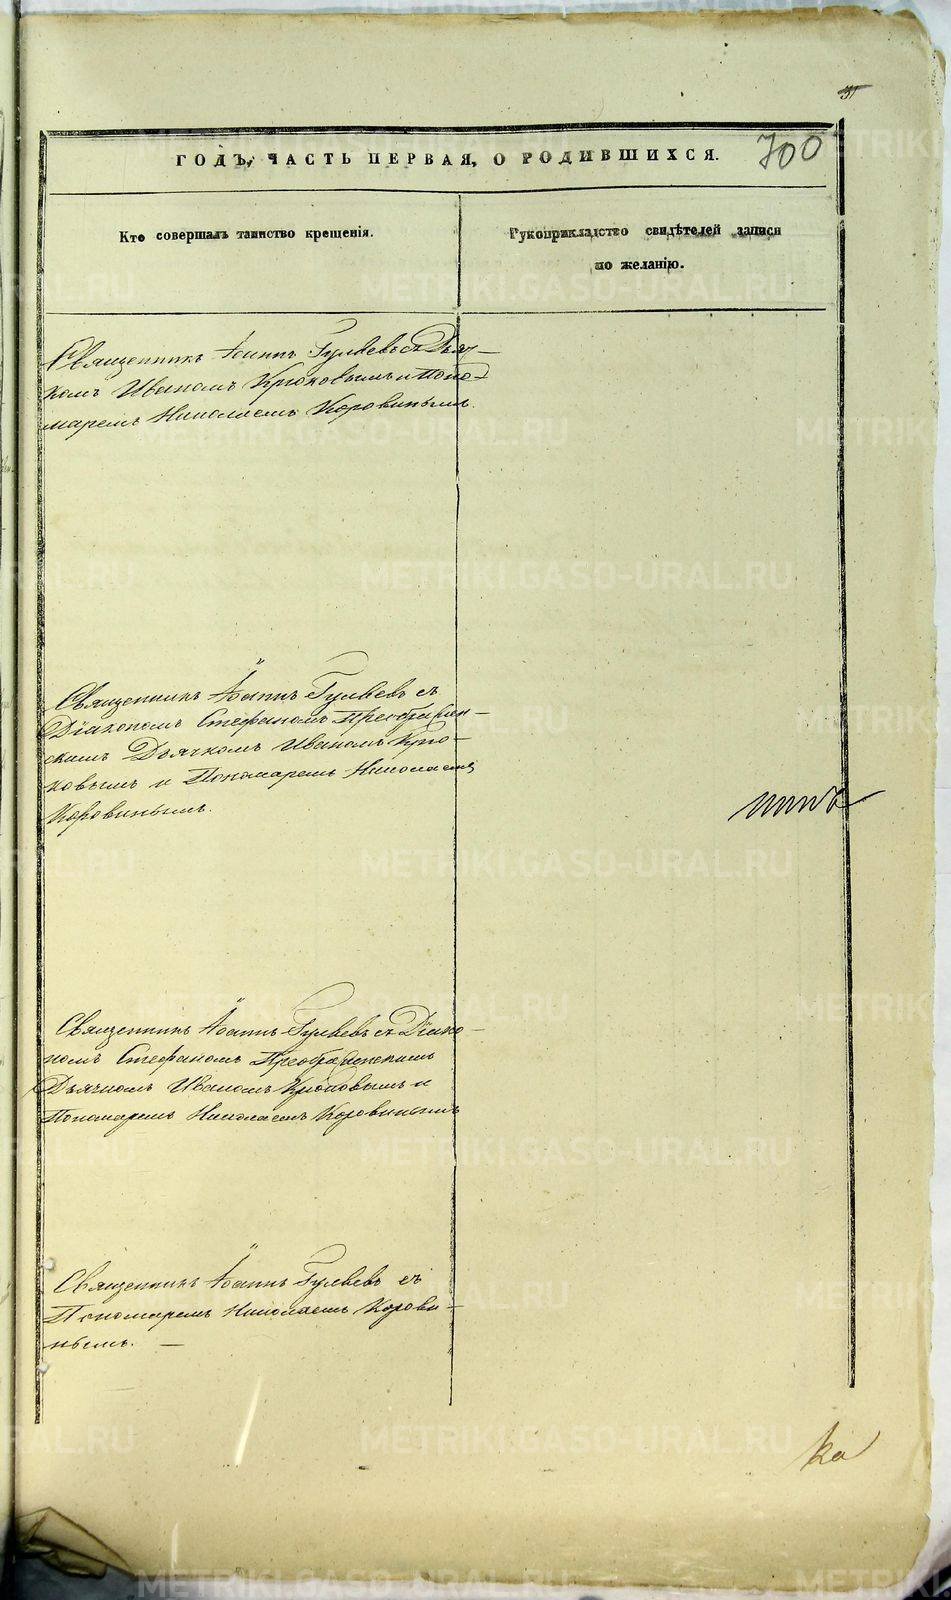 700
ГОДЪ, ЧАСТЬ ПЕРВАЯ, О РОДИВШИХСЯ.
Кто совершалъ таинство крещенія.
Рукоприкладство свидѣтелей записи
по желанію.
Священникъ Іоаннъ Гуляевъ съ Дьяч-
комъ Иваномъ Крюковымъ и Поно-
маремъ Николаемъ Коровинымъ.
Священникъ Іоаннъ Гуляевъ съ
Діакономъ Стефаномъ Преображен-
скимъ Дьячкомъ Иваномъ Крю-
ковымъ и Пономаремъ Николаемъ
Коровинымъ.
Священникъ Іоаннъ Гуляевъ съ Діако-
номъ Стефаномъ Преображенскимъ
Дьячкомъ Иваномъ Крюковымъ и
Пономаремъ Николаемъ Коровинымъ
Священникъ Іоаннъ Гуляевъ съ
Пономаремъ Николаемъ Корови-
нымъ. —
METRIKI.GASO-URAL.RU